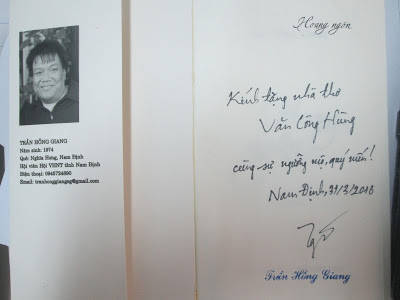 TRẦN HỒNG GIANG
Năm sinh: 1974
Quê: Nghĩa Hưng, Nam Định
Hội viên Hội VHNT tỉnh Nam Định
Điện thoại: 0945724896
Email: tranhonggiangag@gmail.com
Hoang ngôn
Kính tặng nhà thơ
Văn Công Hùng
cùng sự ngưỡng mộ, quý mến!
Nam Định, 31/3/2016
Trần Hồng Giang